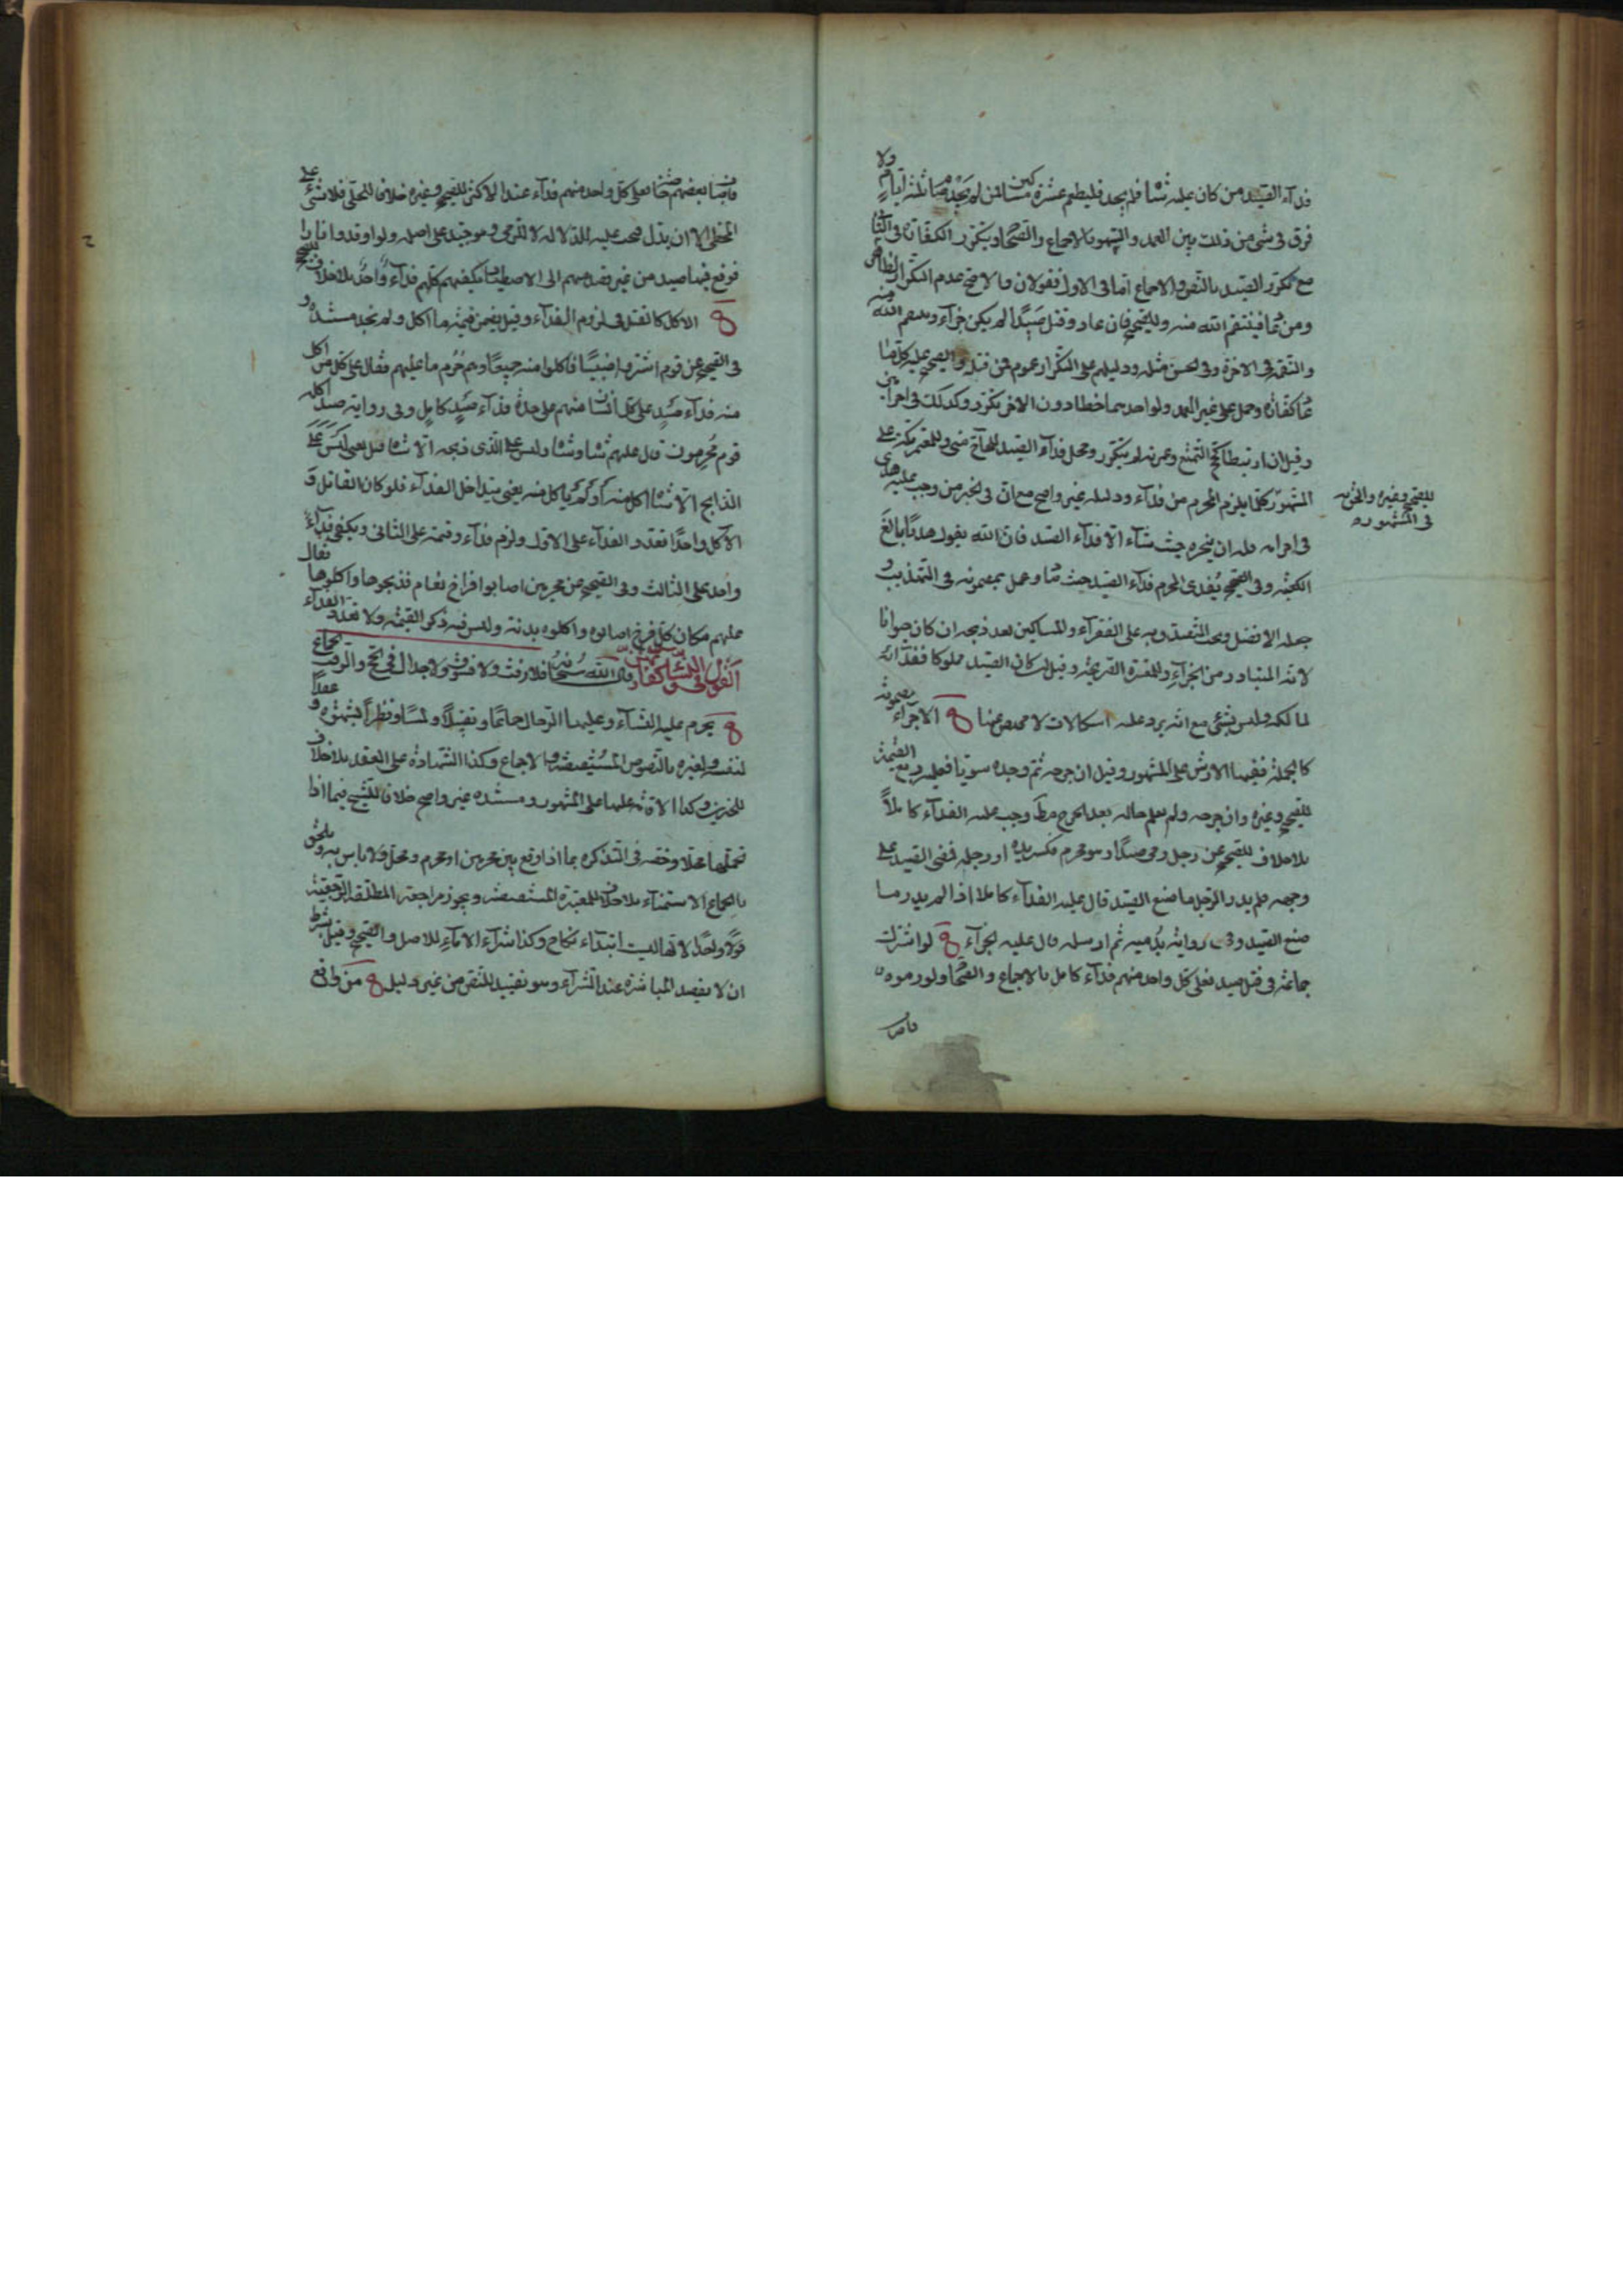 فدآء الصيد من كان عليه شاة فلم يجد فليطعم عشرة مساكين فمن لم يجد صيام ثلثة ايام ولا
فرق فى شئ من ذلك بين العمد والسهو بالاجماع والصحاح ويتكرر الكفارة فى
مع تكرر الصيد بالنص والاجماع اما فى الاول فقولان والاصح عدم التكرار
ومن عاد فينتقم الله منه وللصحيح فان عاد وقتل صيدا لم يكن جزآء وينتقم الله منه
والنقمة فى الاخرة وفى الحسن مثله ودليلهم على التكرار عموم فمن قتله والصحيح عليه كلما
عاد كفارة وحمل على غير العمد ولو احدهما خطا دون الاخر تكرر وكذلك فى احرامين
وقيل ان ارتبطا كحج التمتع وعمرته لم يتكرر ومحل فدآء الصيد للحاج منى وللمعتمر مكة على
المشهور كلما يلزم المحرم من فدآء ودليله غير واضح مع ان فى الخبر من وجب عليه هدى
فى احرامه فله ان ينحره حيث شآء الا فدآء الصيد فان الله يقول هديا بالغ
الكعبة وفى الصحيح يفدى المحرم فدآء الصيد حيث صاد وعمل بمضمونه فى التهذيب و
جعله الافضل ويجب التصدق به على الفقرآء والمساكين بعد ذبحه ان كان حيوانا
لانه المتبادر من الجزآء وللمعتبرة الصريحة وقيل ان كان الصيد مملوكا ففدآؤه
لمالكه وليس بشئ مع انه يرد عليه اشكالات لا مخلص منها الاجزآء مضمونة
كالجملة ففيها الارش على المشهور وقيل ان جرحه ثم وجده سويا فعليه ربع القيمة
للصحيح وغيره وان جرحه ولم يعلم حاله بعد الجرح مط وجب عليه الفدآء كاملا
بلا خلاف للصحيح عن رجل رمى صيدا وهو محرم فكسر يده او رجله فمضى الصيد على
وجهه فلم يدر الرجل ما صنع الصيد قال عليه الفدآء كاملا اذا لم يدر ما
صنع الصيد وفى رواية يدميه ثم ارسله قال عليه الجزآء لو اشترك
جماعة فى قتل صيد فعلى كل واحد منهم فدآء كامل بالاجماع والصحاح ولو رموه
فاصاب
للصحيح وغيره والحزورة
فى المشهور
فاصاب بعضهم خاصة فعلى كل واحد منهم فدآء عند الاكثر للصحيح وغيره خلافا للحلى فلا شئ على
المخطئ الا ان يدل فيجب عليه للدلالة لا للرمى وهو جيد على اصله ولو اوقدوا نارا
فوقع فيها صيد من غير قصد منهم الى الاصطياد يكفيهم كلهم فدآء واحد بلا خلاف للصحيح
الاكل كالقتل فى لزوم الفدآء وقيل يضمن قيمة ما اكل ولم نجد مستنده و
فى الصحيح عن قوم اشتروا ظبيا فاكلوا منه جميعا وهم حرم ما عليهم فقال على كل من اكل
منه فدآء صيد على كل انسان منهم على حدة فدآء صيد كامل وفى رواية صيد اكله
قوم محرمون قال عليهم شاة وشاة وليس على الذى ذبحه الا شاة قيل يعنى ليس على
الذابح الا شاة اكل منه او لم ياكل منه يعنى يتداخل الفدآء فلو كان القاتل و
الآكل واحدا تعدد الفدآء على الاول ولزم فدآء وقيمة على الثانى ويكفى فدآء
واحد على الثالث وفى الصحيح عن محرمين اصابوا افراخ نعام فذبحوها واكلوها فقال
عليهم مكان كل فرخ اصابوه واكلوه بدنة وليس فيه ذكر القيمة ولا تعدد الفدآء
القول فى النسآء وكفارتهن قال الله سبحانه فلا رفث ولا فسوق ولا جدال فى الحج والرفث الجماع
يحرم عليه النسآء وعليها الرجال جماعا وتقبيلا ولمسا ونظرا بشهوة و عقدا
لنفسه ولغيره بالنصوص المستفيضة والاجماع وكذا الشهادة على العقد بلا خلاف
للخبرين وكذا الاقامة عليها على المشهور ومستنده غير واضح خلافا للشيخ فيما اذا
تحملها محلا وخصه فى التذكرة بما اذا وقع بين محرمين او محرم ومحل ولا باس به ويلحق
بالجماع الاستمنآء بلا خلاف للمعتبرة المستفيضة ويجوز مراجعة المطلقة الرجعية
قولا واحدا لانها ليست ابتدآء نكاح وكذا شرآء الامآء للاصل والصحيح وقيل بشرط
ان لا يقصد المباشرة عند الشرآء وهو تقييد للنص من غير دليل من واقع